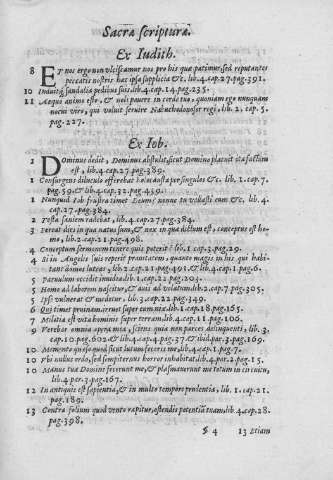 Sacra scriptura.
Ex Iudith.
8 Et nos ergo non vlciscamur nos pro his quæ patimur, sed reputantes
peccatis nostris hæc ipsa supplicia &c. lib.4.cap.27.pag.391.
10 Induitq́ sandalia pedibus suis lib.4.cap.14.pag.235.
11 Aequo animo esto, & noli pauere in corde tuo, quoniam ego nunquam
nocui viro, qui voluit seruire Nabuchodonosor regi, lib. 2. cap. 5.
pag. 227.
Ex Iob.
1 Dominus dedit, Dominus abstulit, sicut Domino placuit ita factum
est, lib.4.cap.27.pag.389.
1 Consurgens diluculo offerebat holocausta per singulos &c. lib. 1. cap. 7.
pag. 59. & lib.4.cap. 32. pag. 439.
1 Nunquid Iob frustra timet Deum? nonne tu vallasti eum &c. lib. 4.
cap. 27. pag. 384.
2 Testa saniem radebat, lib.4.cap.27.pag.384.
3 Pereat dies in qua natus sum, & nox in qua dictum est, conceptus est ho-
mo, lib. 2.cap.21.pag.498.
4 Conceptum sermonem tenere quis poterit? lib.1.cap.3.pag.29.
4 Si in Angelis suis reperit prauitatem, quanto magis in his qui habi-
tant domos luteas, lib.2.cap.21.pag.491.& lib.4.cap.1.pag.6.
5 Paruulum occidit inuidia lib.1.cap.22.pag.203.
5 Homo ad laborem nascitur, & auis ad volatum lib.2.cap.7.pag.305.
5 Ipse vulnerat & medetur, lib. 3.cap.22.pag.349.
6 Qui timet pruinam, irruet super eum nix lib.1.cap.18.pag.165.
7 Militia est vita hominis super terram, lib.4.cap.11.pag.106.
9 Verebar omnia opera mea, sciens quia non parces delinquenti, lib. 3.
cap.10.pag.602.& lib.4.cap.4.pag.37.& ibid.par.3.pag.169.
10 Memento quæso quod sicut lutum feceris me, lib.4.cap.1.pag.7.
10 Vbi nullus ordo, sed sempiternus horror inhabitat lib.4.par.2.pag.15.
10 Manus tuæ Domine fecerunt me, & plasmauerunt me totum in circuitu,
lib.4.par.3.pag.167.
12 In antiquis est sapientia, & in multo tempore prudentia, lib. 1. cap.21.
pag.189.
13 Contra folium quod vento rapitur, ostendis potentiam tuam, lib.4.cap.28.
pag.398.
4 13 Etiam